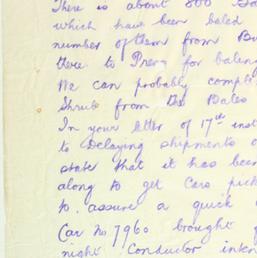 There is about 800 Ba
which have been baled
number of them from Bu
there to for baling
We can probably compl
Shrub from the Bales
In your letter of 17th inst
to Delaying shipments o
state that it has been
along to get Cars pick
to assure a quick
Car No 7960 brought f
night Conductor